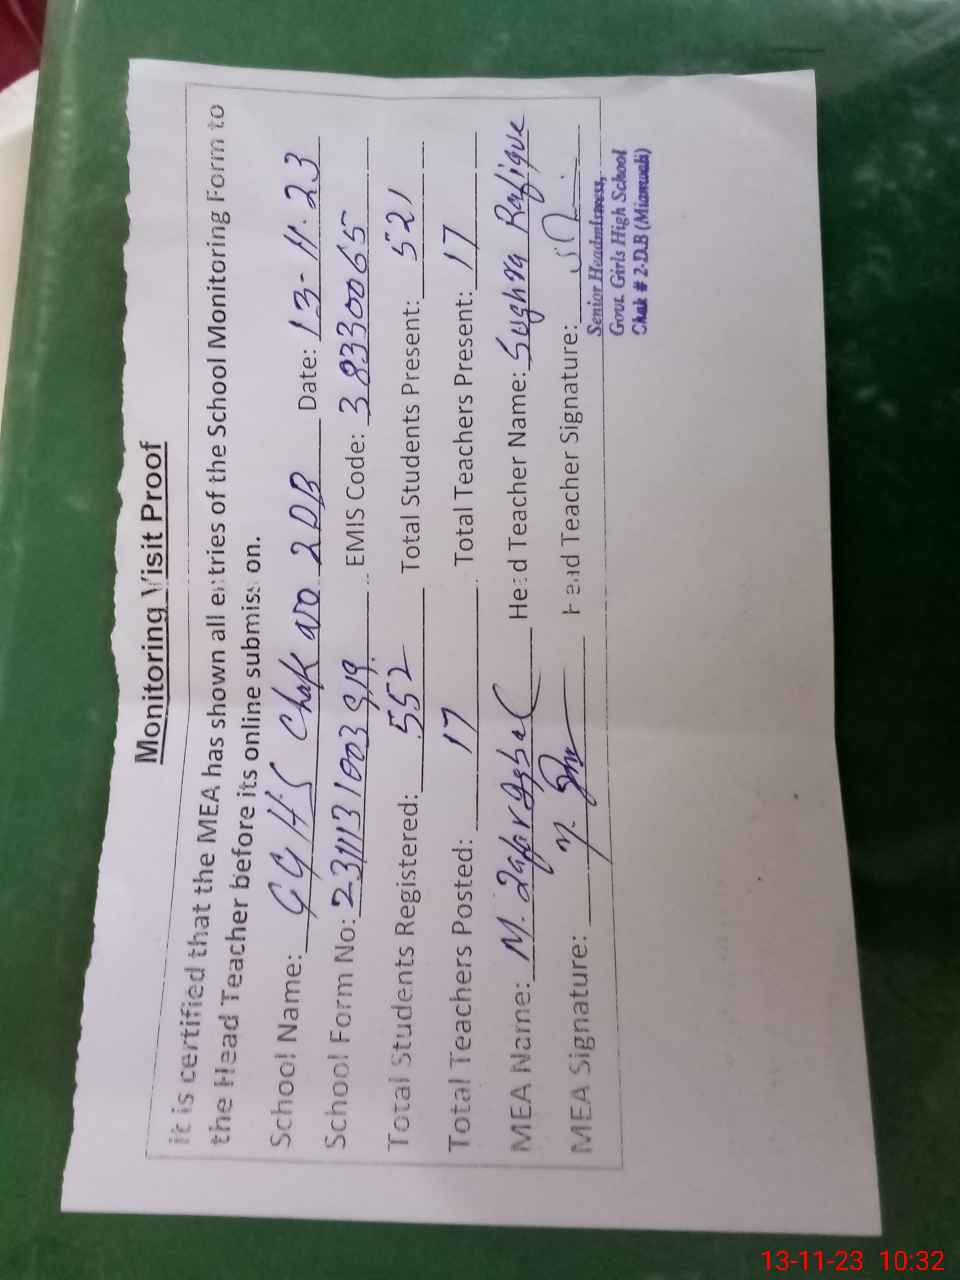 Monitoring Visit Proof
It is certified that the MEA has shown all entries of the School Monitoring Form to
the Head Teacher before its online submission.
School Name: GGHS Chak No 2DB Date: 13-11-23
School Form No: 231113 1003 919 EMIS Code: 38330065
Total Students Registered: 552 Total Students Present: 521
Total Teachers Posted: 17 Total Teachers Present: 17
MEA Name: M. Zafar Iqbal Head Teacher Name: Sughra Rafique
MEA Signature: Head Teacher Signature:
Senior Headmistress,
Govt. Girls High School
Chak # 2-D.B (Mianwali)
13-11-23 10:32